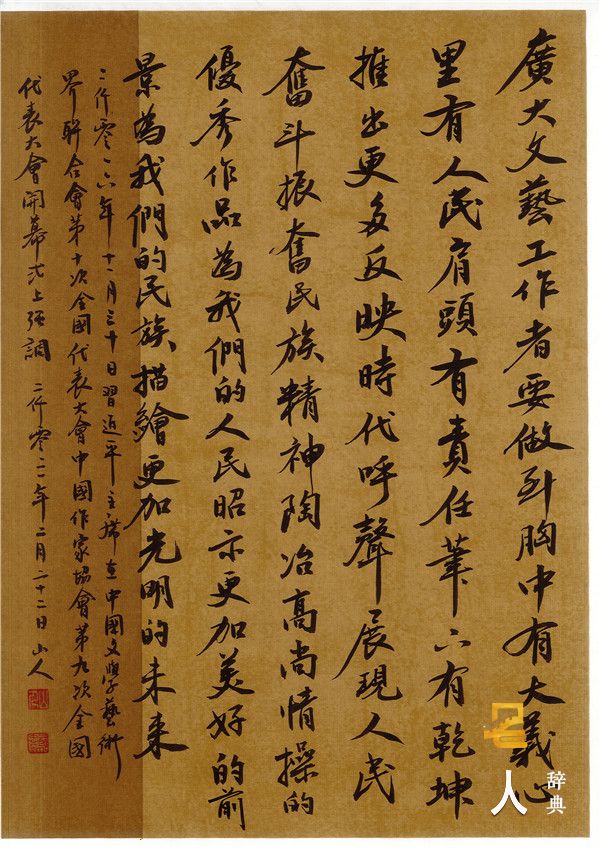 廣大文藝工作者要做到胸中有大義心
里有人民肩頭有責任筆下有乾坤
推出更多反映時代呼聲展現人民
奮斗振奮民族精神陶冶高尚情操的
優秀作品為我們的人民昭示更加美好的前
景為我們的民族描繪更加光明的未来
二仟零一六年十一月三十日習近平主席在中國文學藝術
界聯合會第十次全國代表大會中國作家協會第九次全國
代表大會開幕式上强調 二仟零二二年二月二十二日 山人
名人辞典